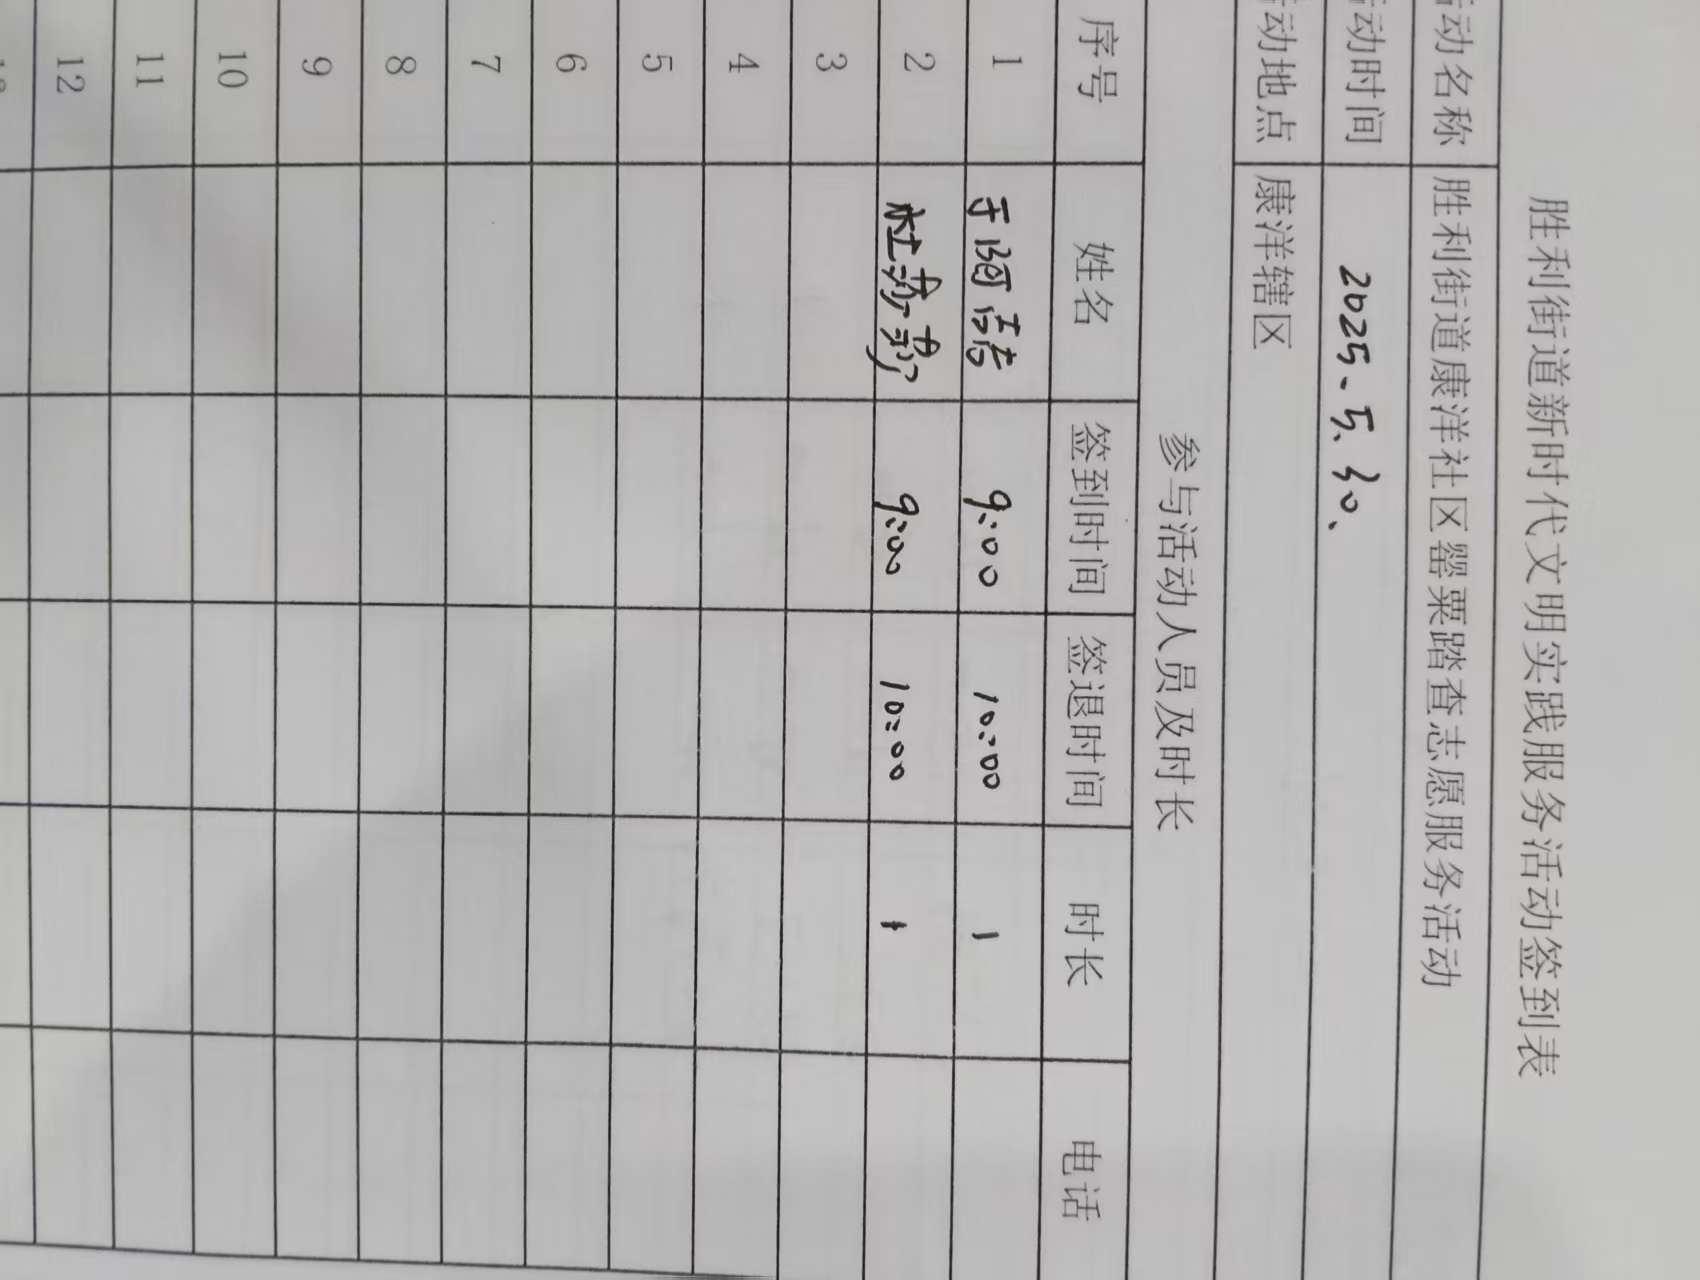 胜利街道新时代文明实践服务活动签到表
活动名称 胜利街道康洋社区罂粟踏查志愿服务活动
活动时间 2025.5.30.
活动地点 康洋辖区
参与活动人员及时长
序号 姓名 签到时间 签退时间 时长 电话
1 于 9:00 10:00 1
2 杜 9:00 10:00 1
3
4
5
6
7
8
9
10
11
12